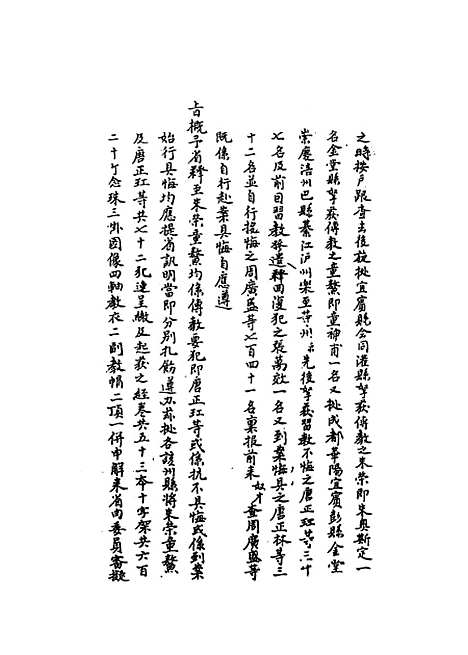 之時按户跟查去後旋挑宜賓縣會同灌縣拏获傳教之朱榮即朱奥斯定一
名金堂縣拏获傳教之童鰲即童神甫一名又挑成都華陽宜賓彭縣金堂
崇慶涪州巴縣綦江泸州樂至等州縣先後拏获習教不悔之唐正玒等三十
七名及前因習教發遣釋回復犯之張萬效一名又到案悔具之唐正林等三
十二名並自行投悔之周廣盛等七百四十一名禀报前来奴才查周廣盛等
既係自行赴案具悔自應遵
旨概予省釋至朱榮童鰲均係傳教要犯即唐正玒等或係抗不具悔或係到案
始行具悔均應提省訊明當即分别札飭遵办茲挑各該州縣將朱榮童鰲
及唐正玒等共七十二犯連呈繳及起获之經卷共五十三本十字架共六百
二十个念珠三串圖像四軸教衣二副教帽二頂一併申解来省由委員審擬